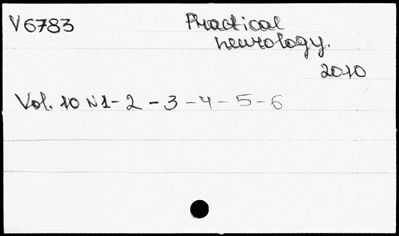 V 6783
Practical
neurology.
2010
Vol. 10 N1-2-3-4-5-6